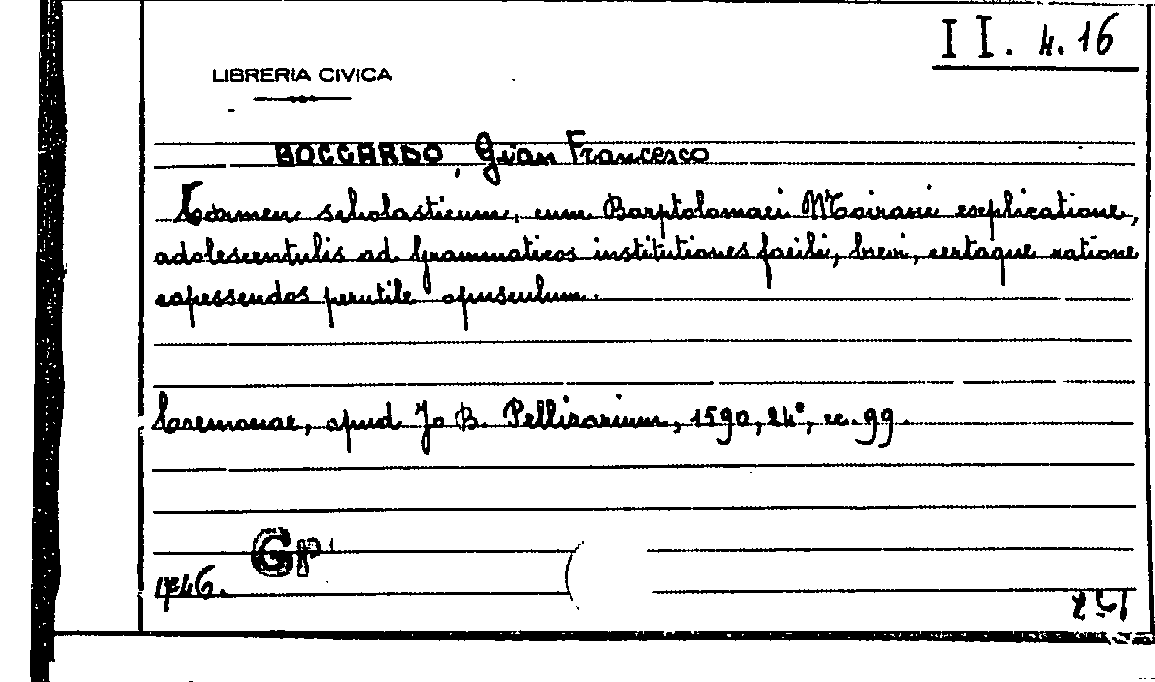 II. 4.16
LIBRERIA CIVICA
BOCCARDO, Gian Francesco
Carmen scholasticum, cum Barptolomaei Moirani explicatione,
adolescentulis ad Grammaticos institutiones facili, brevi, certaque ratione
capessendos perutile opusculum.
Cremonae, apud Jo B. Pellizarium, 1590, 24°, cc. 99.
Gp
1746.
251